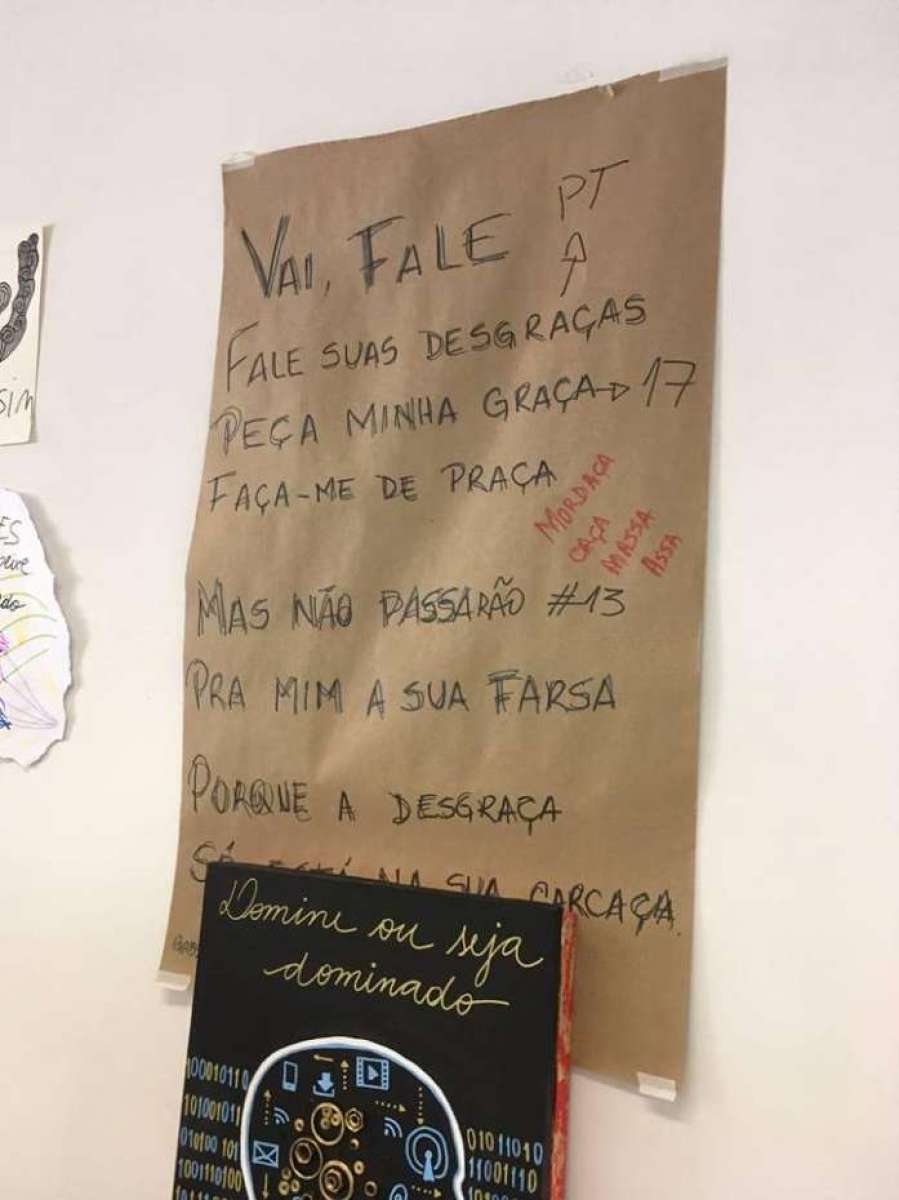 VAI, FALE PT
FALE SUAS DESGRAÇAS
PEÇA MINHA GRAÇA→ 17
FAÇA-ME DE PRAÇA
MORDAÇA
CAÇA
MASSA
ASSA
MAS NÃO PASSARÃO #13
PRA MIM A SUA FARSA
PORQUE A DESGRAÇA
SÓ ESTÁ NA SUA CARCAÇA.
Domine ou seja
dominado
100010110
101001011
010100 101
1001110100
01011010
11001110